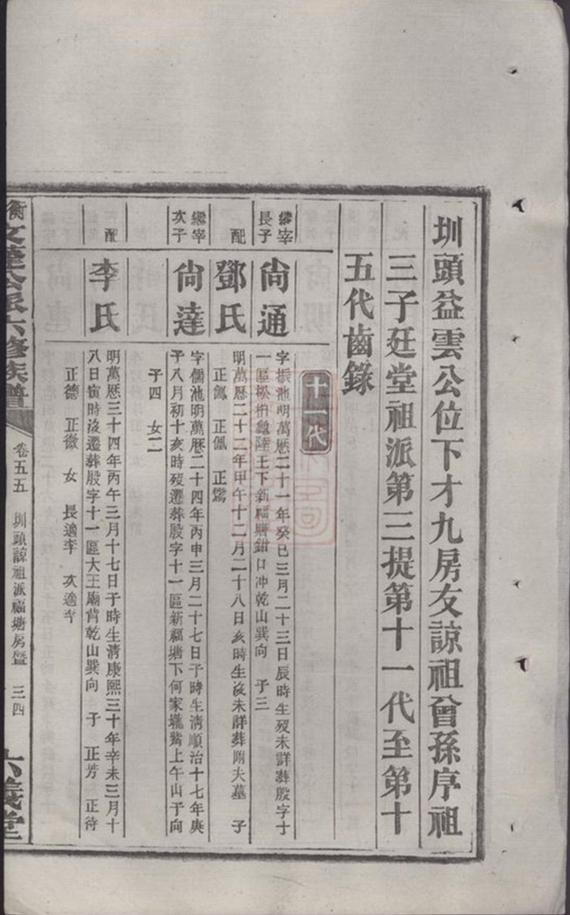 圳頭益雲公位下才九房友諒祖曾孫序祖
三子廷堂祖派第三提第十一代至第十
五代齒錄
十一代
繼宰
長子
尙通
字振池明萬厯二十一年癸巳三月二十三日辰時生歿未詳葬殷字十
一區
下新福塘鉗口冲乾山巽向 子三
配
鄧氏
明萬厯二十二年甲午十二月二十八日亥時生歿未詳葬附夫墓 子
正佩
繼宰
次子
尙達
字儒池明萬厯二十四年丙申三月二十七日子時生淸順治十七年庚
子八月初十亥時歿遷葬殷字十一區新福塘下何家壠觜上午山子向
子四 女二
配
李氏
明萬厯三十四年丙午三月十七日子時生淸康熙三十年辛未三月十
八日寅時歿遷葬殷字十一區大王廟背乾山巽向 子 正芳 正待
正德 正徵 女 長適李 次適
公派六修族譜
卷五五 圳頭諒祖派福塘房暨 三四
六義堂